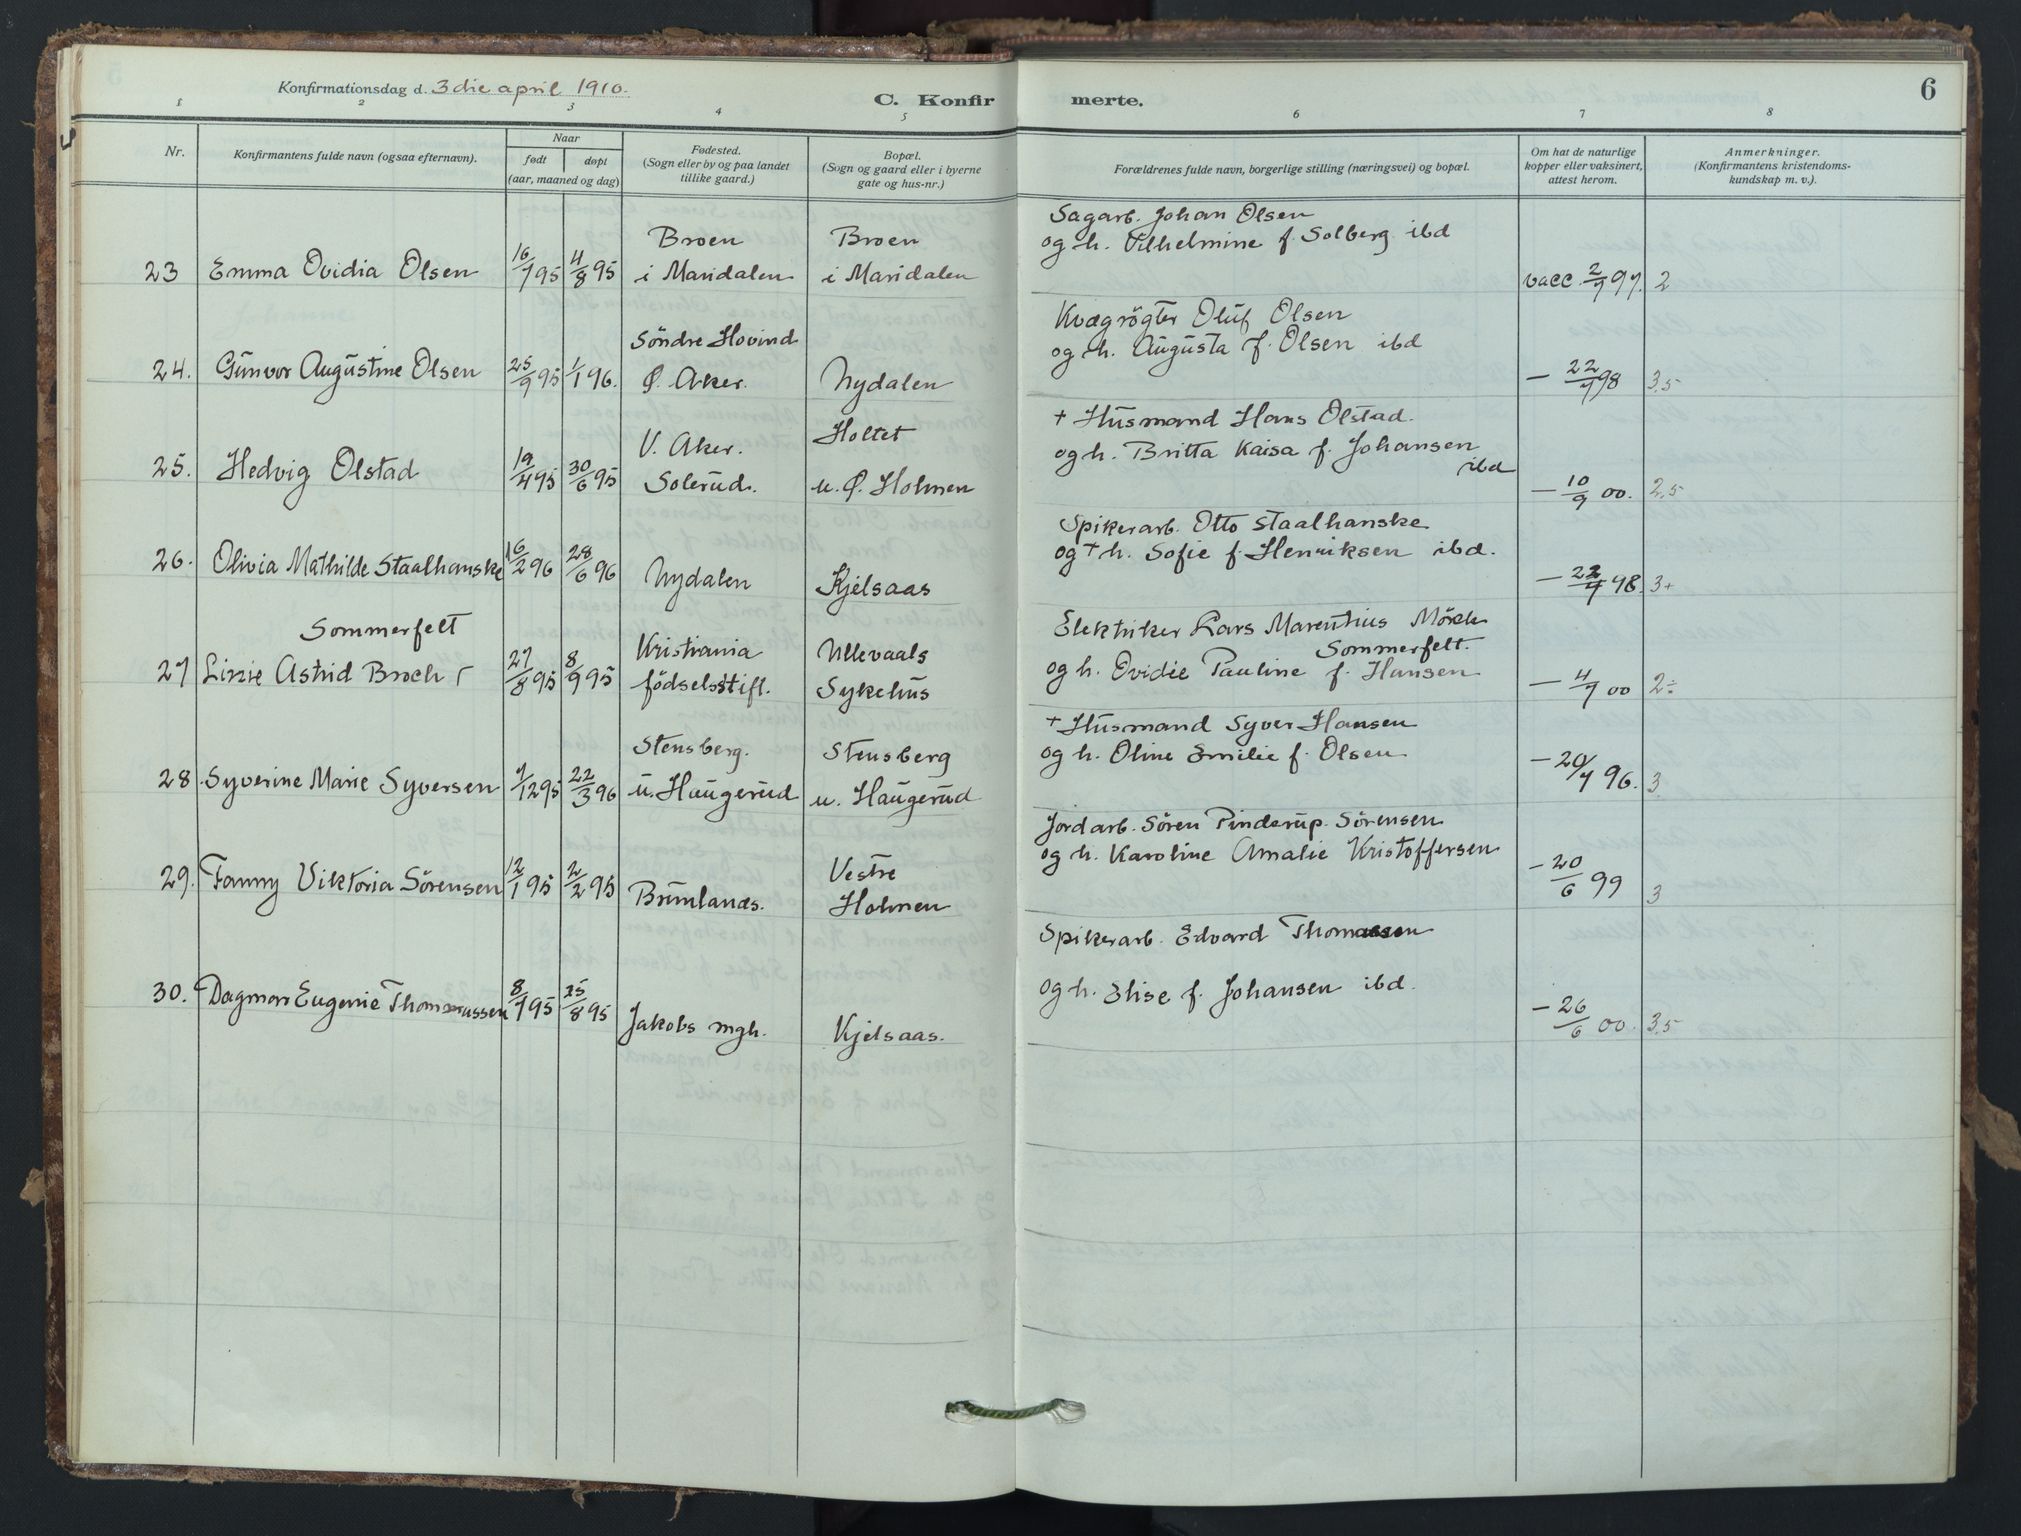 Konfirmationsdag d. 3die april 1910.
C. Konfir merte.
6
1 2 3 4 5 6 7 8
Nr.
Konfirmantens fulde navn (ogsaa efternavn).
Naar
født døpt
(aar, maaned og dag)
Fødested.
(Sogn eller by og paa landet
tillike gaard.)
Bopæl.
(Sogn og gaard eller i byerne
gate og hus-nr.)
Forældrenes fulde navn, borgerlige stilling (næringsvei) og bopæl.
Om hat de naturlige
kopper eller vaksinert,
attest herom.
Anmerkninger.
(Konfirmantens kristendoms-
kundskap m. v.).
23 Emma Ovidia Olsen 16/7 95 4/8 95
Broen
i Maridalen
Broen
i Maridalen
Sagarb. Johan Olsen
og h. Vilhelmine f. Solberg ibd
vacc. 2/7 97. 2
24. Gunvor Augustine Olsen 25/9 95 1/1 96.
Söndre Hovind
Ø. Aker.
Nydalen
Kvægrögter Oluf Olsen
og h. Augusta f. Olsen ibd
— 22/7 98 3,5
25. Hedvig Olstad 19/4 95 30/6 95
V. Aker.
Solerud.
Holtet
u. Ø. Holmen
+ Husmand Hans Olstad.
og h. Britta Kaisa f. Johansen
ibd
— 10/9 00. 2,5
26. Olivia Mathilde Staalhanske 16/2 96 28/6 96
Nydalen
Kjelsaas
Spikerarb. Otto Staalhanske
og + h. Sofie f. Henriksen ibd.
3+
Sommerfelt
27 Lizzie Astrid Broch 27/8 95 8/9 95
Kristiania
födselsstift.
Ullevaals
Sykehus
Elektriker Lars Marentius Mörch
Sommerfelt.
og h. Ovidie Pauline f. Hansen
— 4/7 00 2÷
28 Syverine Marie Syversen 7/12 95 22/3 96
Stensberg.
u. Haugerud
Stensberg
u. Haugerud
+ Husmand Syver Hansen
og h. Oline Emilie f. Olsen
— 20/7 96. 3.
29. Fanny Viktoria Sörensen 12/1 95 2/2 95
Brunlanæs.
Vestre
Holmen
Jordarb. Sören Pinderup Sörensen
og h. Karoline Amalie Kristoffersen
- 20/6 99 3
30. Dagmar Eugenie Thommassen 8/7 95 25/8 95
Jakobs mgh.
Kjelsaas.
Spikerarb. Edvard Thomassen
og h. Elise f. Johansen ibd.
- 26/6 00. 3,5